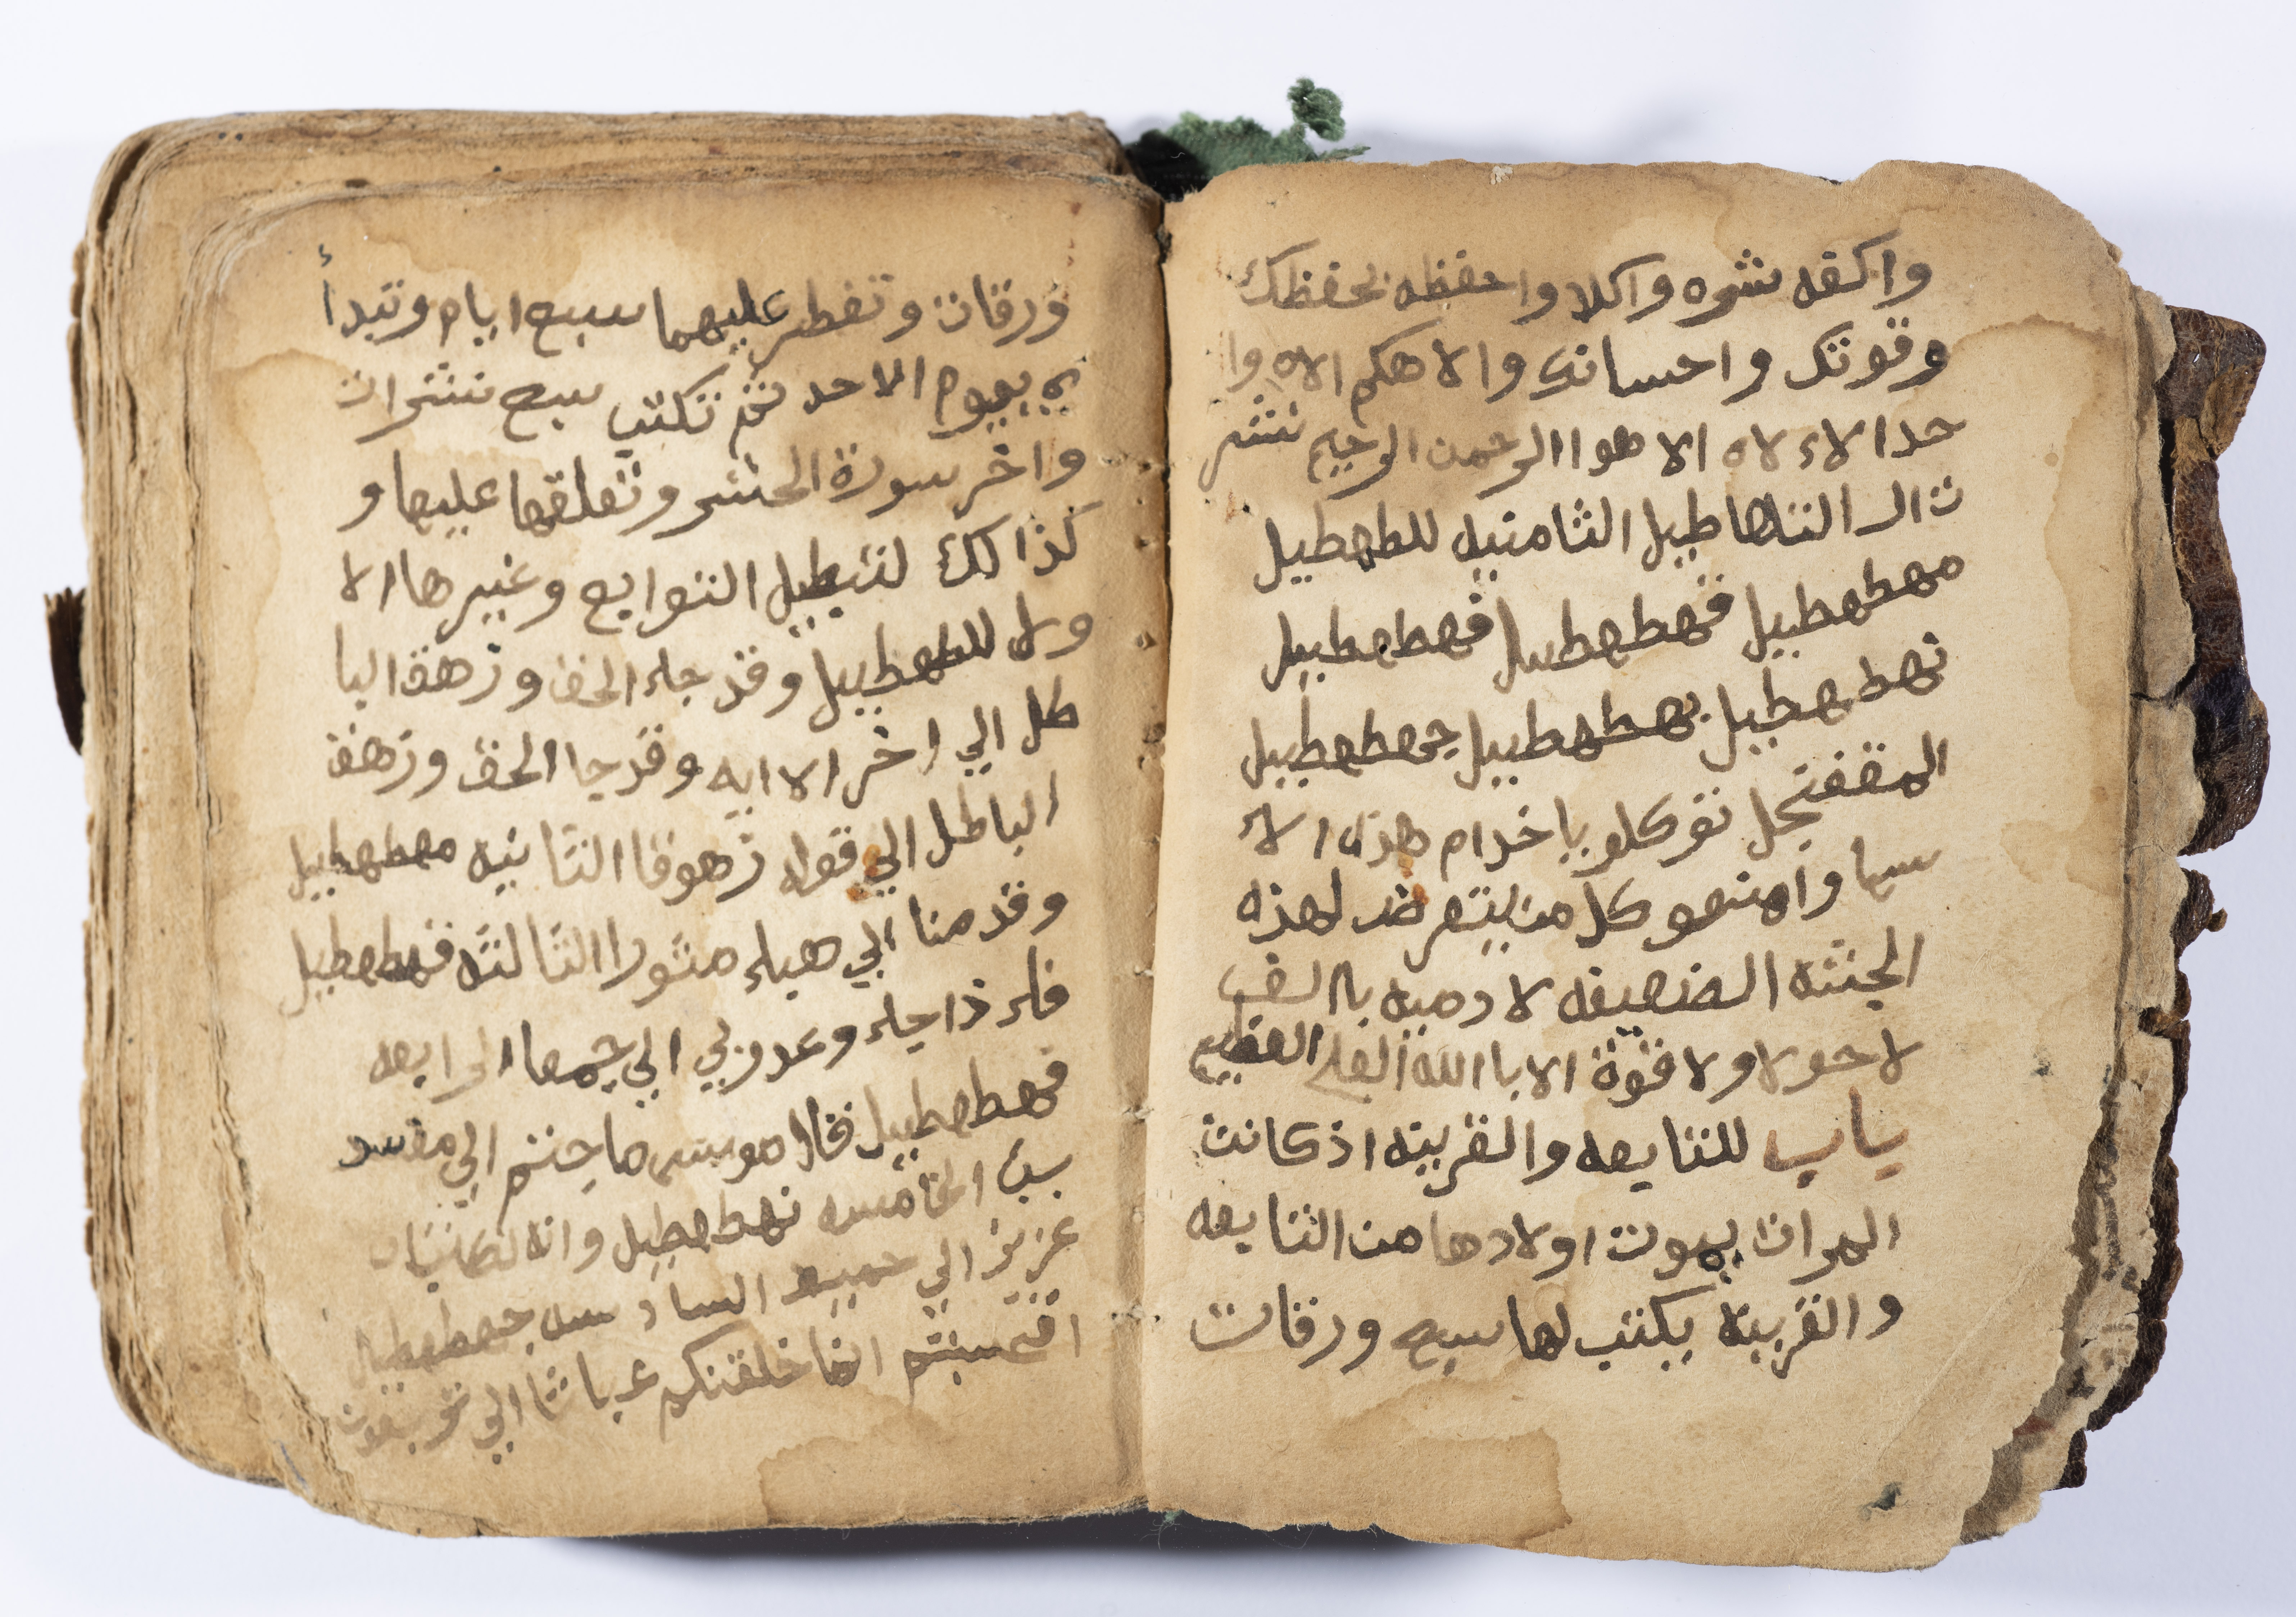 واكفه شره واكلا واحفظه بحفظك
وقوتك واحسانك والاهكم الاه وا
حدا لاء لاه الا هوا الرحمن الرحيم نشر
ت الر التلها طيل الثامنيه للطهطيل
مهطهطييل قهطهطييل فهطهطييل
نهطهطييل بهطهطييل جهطهطييل
المقفنجل توكلو ياخدام هذه الاء
سما وامنعو كل من يتعرض لهذه
الجثته الضعيفه لادميه باالف
لاحولا ولا قوة الا باالله العلي العظيم
باب للتايعه والقرينه اذ كانت
المرات يموت اولادها من التابعه
والقرينة يكتب لها سبع ورقات
ورقات وتفطر عليهما سبع ايام وتبدأ
في بيوم الاحد ثم تكتب سبع نشرات
واخر سورة الحشر وتعلقها عليها و
كذالك لتبطيل التوابع وغيرها الا
ول للطهطييل وقد جاء الحق وزهق البا
طل الي اخر الاايه وقد جا الحق وزهق
الباطل الي قوله زهوقا الثانيه مهطهطييل
وقدمنا الي هباء منثورا الثالثه قهطهطيل
فاء ذا جاء وعد ربي الي جمعا الرابعه
فهطهطييل قال موسى ما جئتم الي مفسد
ين الخامسه نهطهطيل وانه لكتاب
عزيز الي حميد السادسه جهطهطيل
افحسبتم انما خلقنكم عباثا الي ترجعون